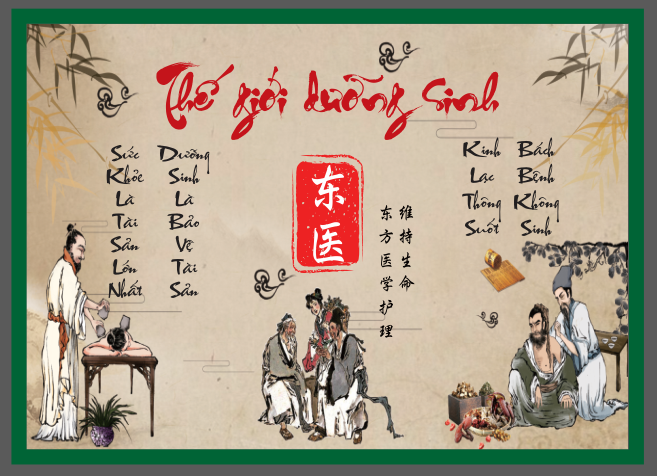 Thế giới dưỡng sinh
Sức Dưỡng
Khỏe Sinh
Là Là
Tài Bảo
Sản Vệ
Lớn Tài
Nhất Sản
东医
维持生命
东方医学护理
Kinh Bách
Lạc Bệnh
Thông Không
Suốt Sinh